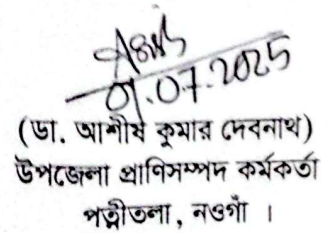 01.07.2025
(ডা. আশীষ কুমার দেবনাথ)
উপজেলা প্রাণিসম্পদ কর্মকর্তা
পত্নীতলা, নওগাঁ ।